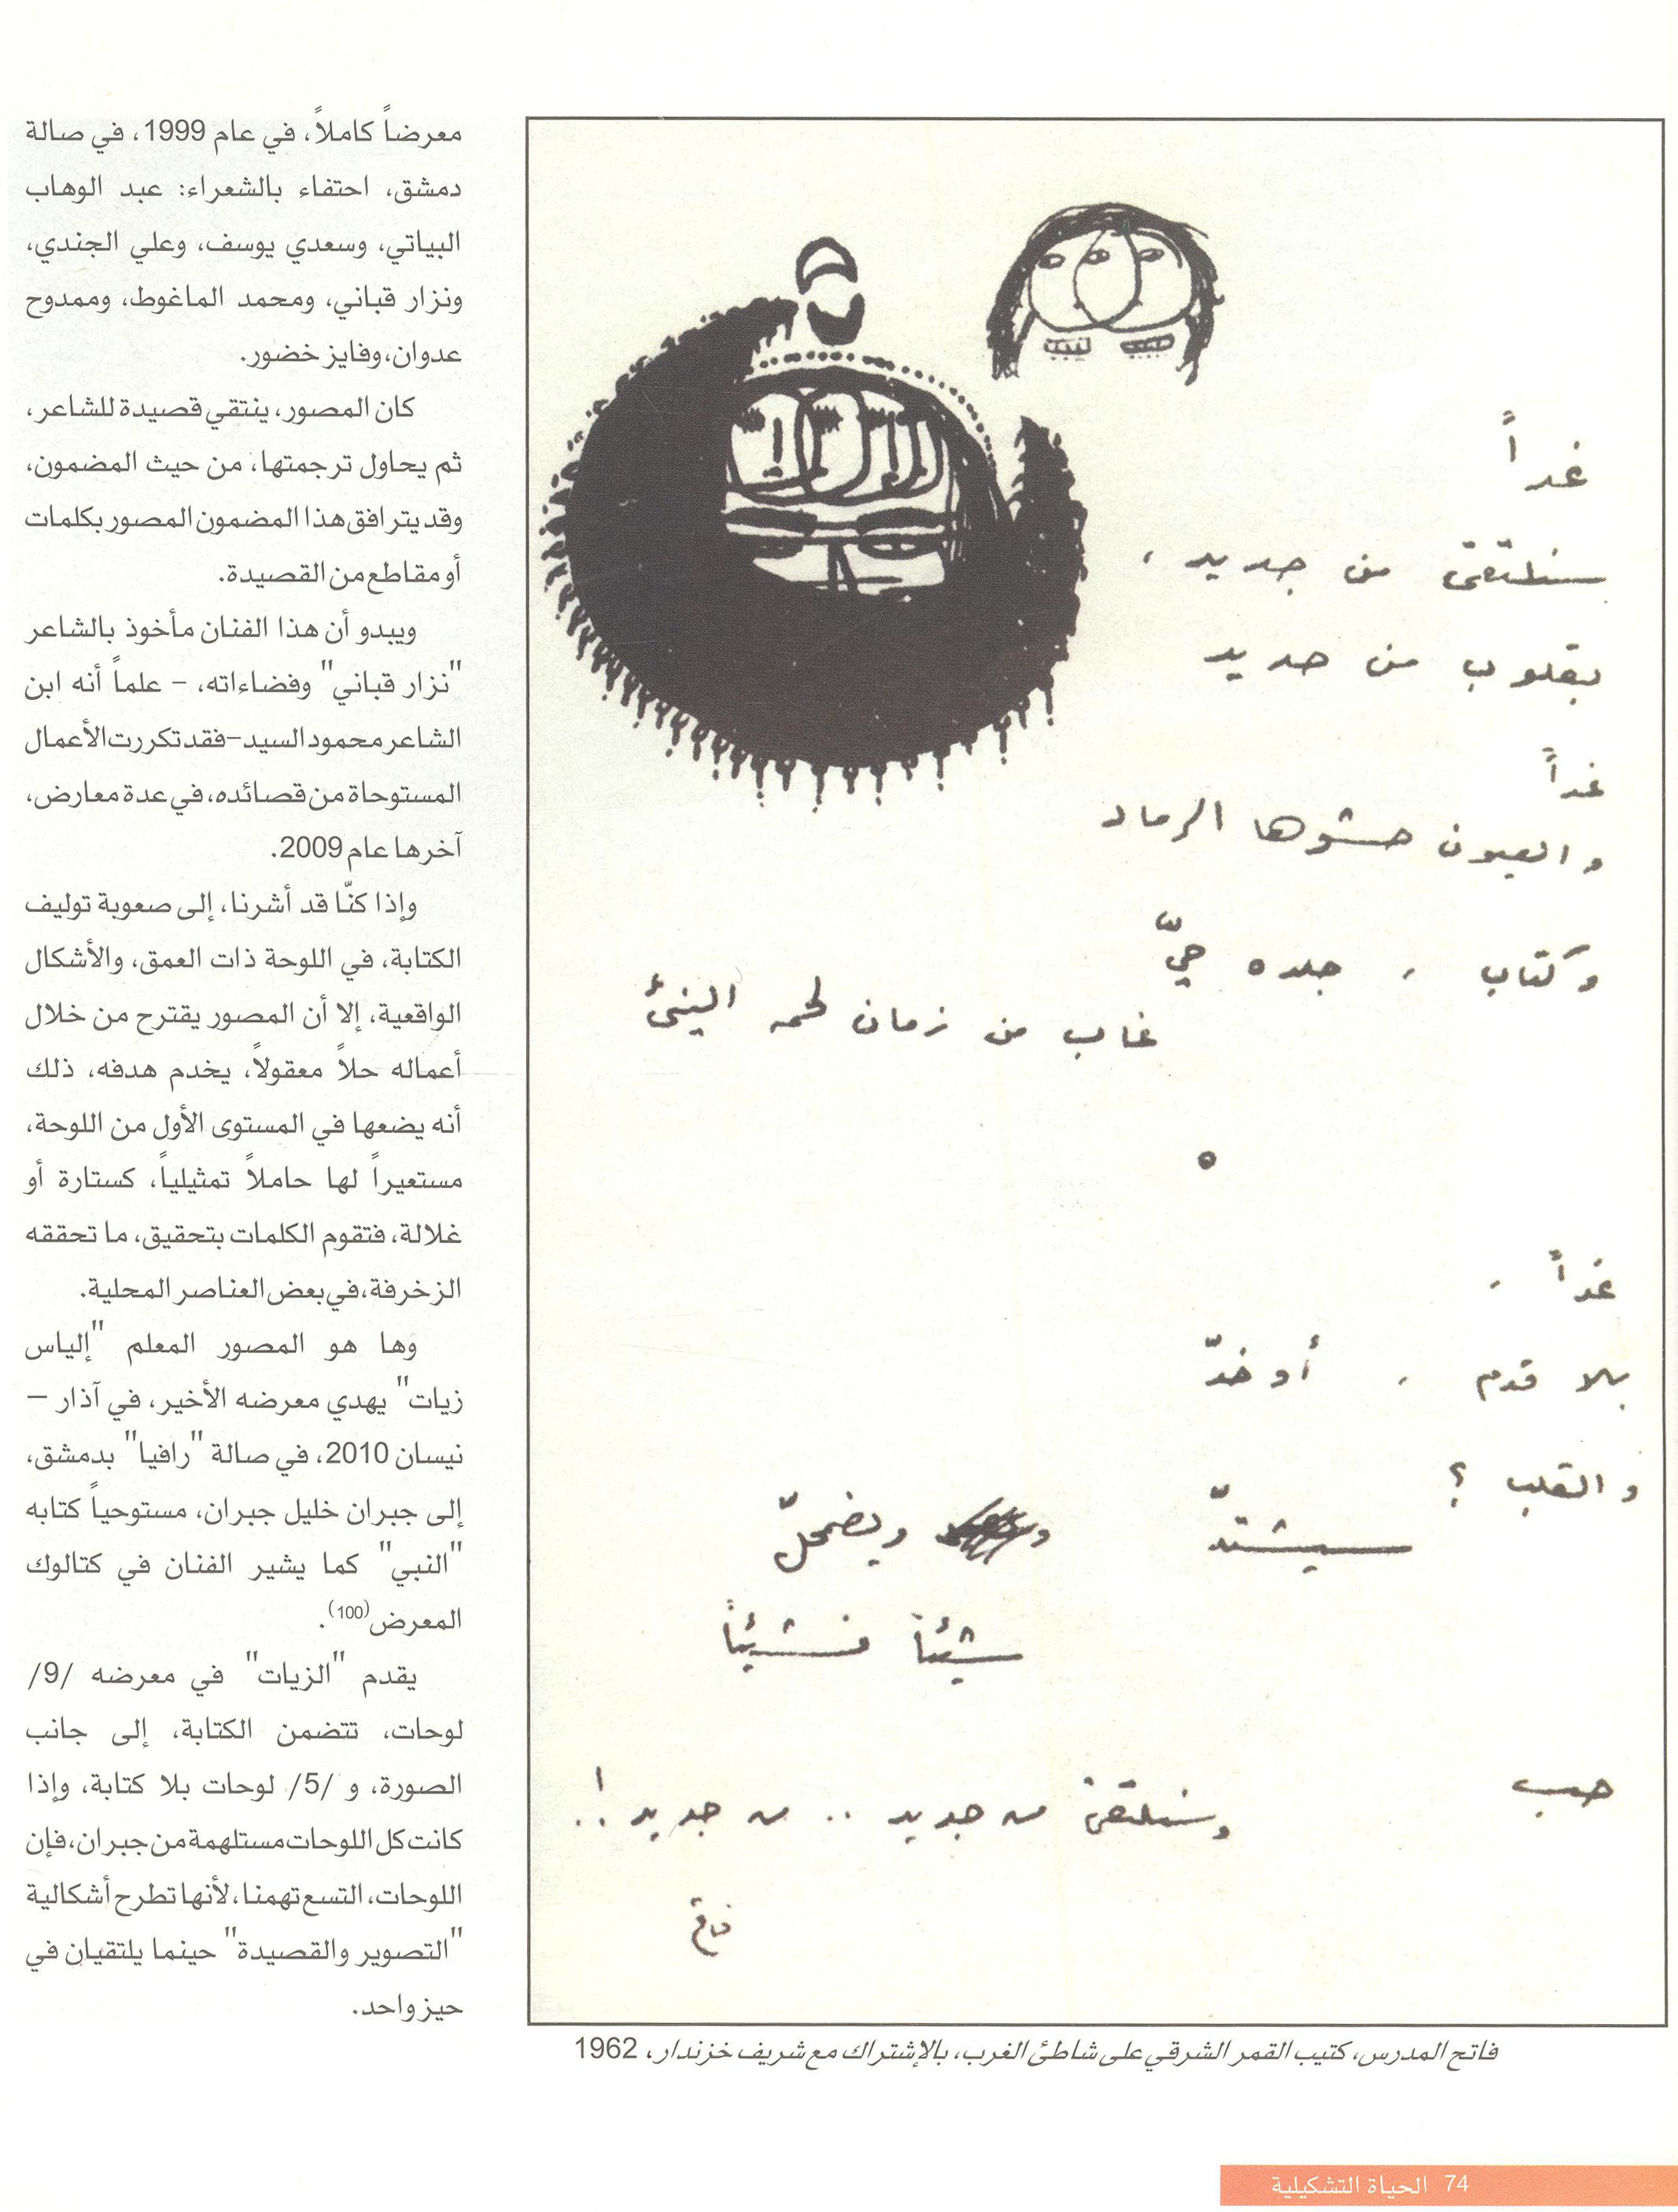 غداً
سنلتقي من جديد ،
بقلوب من حديد
غداً
والعيون حشوها الرماد
وكتاب ، جلده حيّ
غاب من زمان لحمه النيئ
غداً ،
بلا قدم ، أو خدّ
والقلب ؟
سيشتدّ ويضمحلّ
شيئاً فشيئاً
حب
وسنلتقي من جديد .. من جديد !..
فاتح
فاتح المدرس، كتيب القمر الشرقي على شاطئ الغرب، بالإشتراك مع شريف خزندار، 1962
معرضاً كاملاً، في عام 1999، في صالة
دمشق، احتفاء بالشعراء: عبد الوهاب
البياتي، وسعدي يوسف، وعلي الجندي،
ونزار قباني، ومحمد الماغوط، وممدوح
عدوان، وفايز خضور.
كان المصور، ينتقي قصيدة للشاعر،
ثم يحاول ترجمتها، من حيث المضمون،
وقد يترافق هذا المضمون المصور بكلمات
أو مقاطع من القصيدة.
ويبدو أن هذا الفنان مأخوذ بالشاعر
"نزار قباني" وفضاءاته، – علماً أنه ابن
الشاعر محمود السيد– فقد تكررت الأعمال
المستوحاة من قصائده، في عدة معارض،
آخرها عام 2009.
وإذا كنّا قد أشرنا، إلى صعوبة توليف
الكتابة، في اللوحة ذات العمق، والأشكال
الواقعية، إلا أن المصور يقترح من خلال
أعماله حلاً معقولاً، يخدم هدفه، ذلك
أنه يضعها في المستوى الأول من اللوحة،
مستعيراً لها حاملاً تمثيلياً، كستارة أو
غلالة، فتقوم الكلمات بتحقيق، ما تحققه
الزخرفة، في بعض العناصر المحلية.
وها هو المصور المعلم "إلياس
زيات" يهدي معرضه الأخير، في آذار –
نيسان 2010، في صالة "رافيا" بدمشق،
إلى جبران خليل جبران، مستوحياً كتابه
"النبي" كما يشير الفنان في كتالوك
المعرض(100).
يقدم "الزيات" في معرضه /9/
لوحات، تتضمن الكتابة، إلى جانب
الصورة، و /5/ لوحات بلا كتابة، وإذا
كانت كل اللوحات مستلهمة من جبران، فإن
اللوحات، التسع تهمنا، لأنها تطرح أشكالية
"التصوير والقصيدة" حينما يلتقيان في
حيز واحد.
74 الحياة التشكيلية